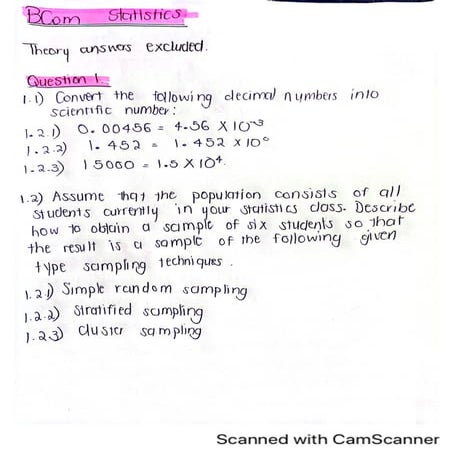 BCom Statistics
Theory answers excluded.
Question 1.
1.1) Convert the following decimal numbers into
scientific number:
1.2.1) 0.00456 = 4.56 X 10^-3
1.2.2) 1.452 = 1.452 X 10^0
1.2.3) 15000 = 1.5 X 10^4.
1.2) Assume that the population consists of all
students currently in your statistics class. Describe
how to obtain a sample of six students so that
the result is a sample of the following given
type sampling techniques.
1.2.1) Simple random sampling
1.2.2) Stratified sampling
1.2.3) cluster sampling
Scanned with CamScanner